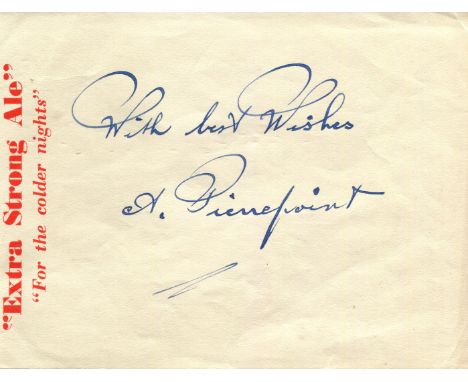 "Extra Strong Ale"
"For the colder nights"
With best Wishes
A. Pierrepoint